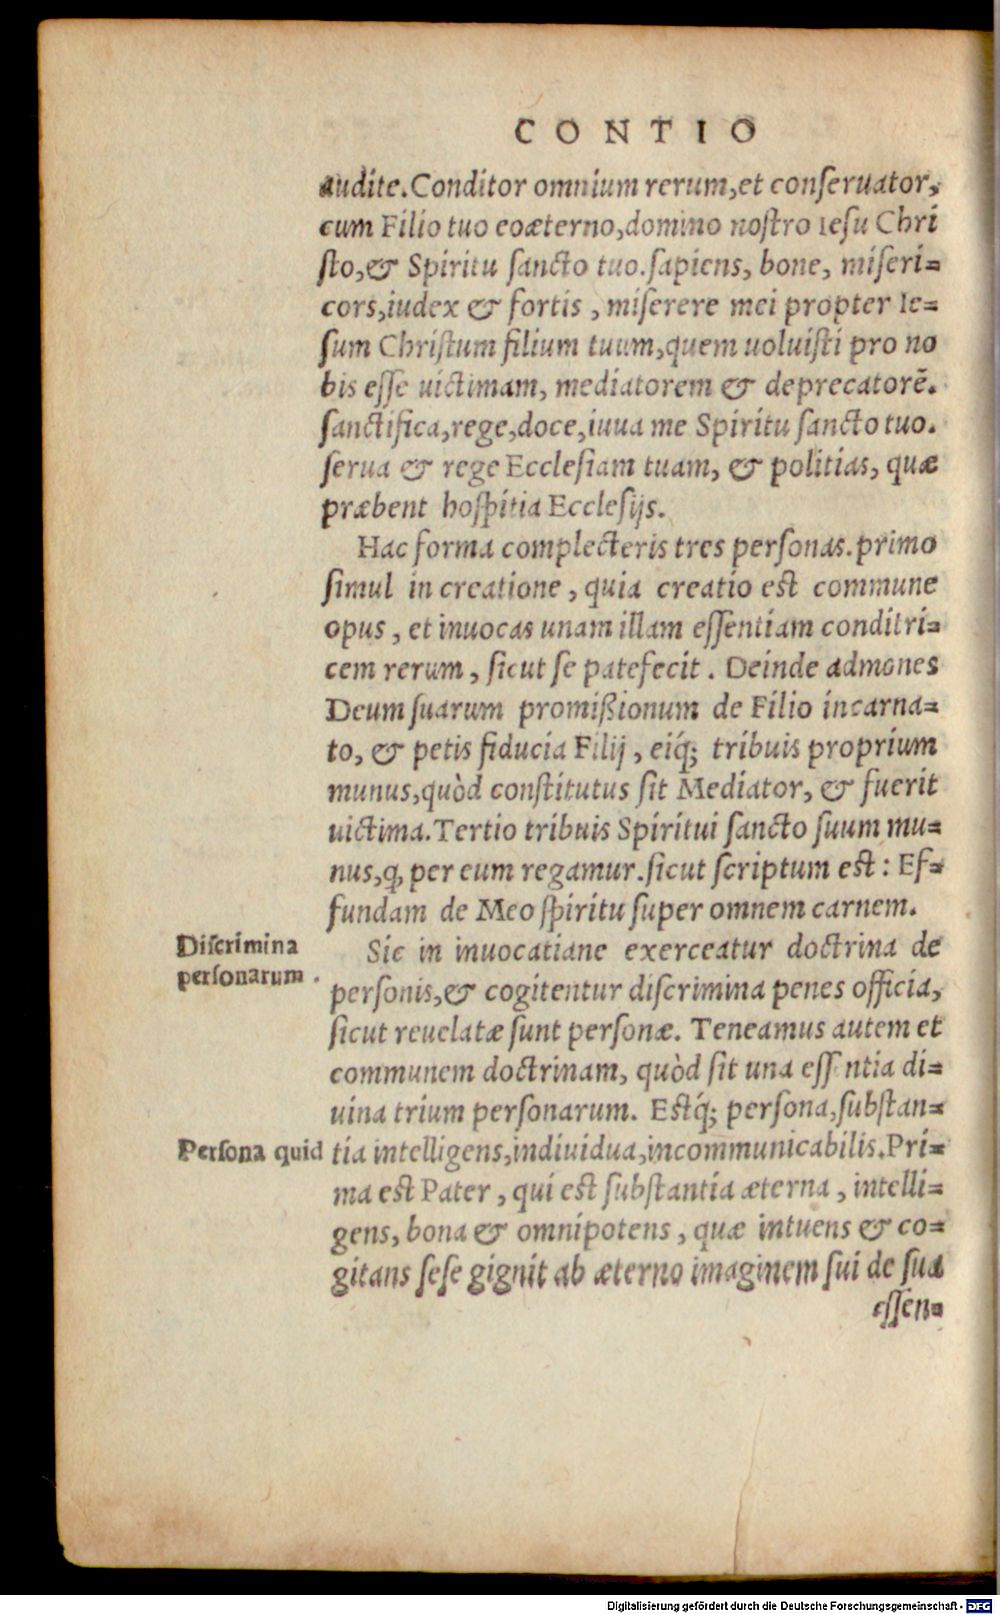 CONTIO
audite. Conditor omnium rerum, et conſeruator,
cum Filio tuo coæterno, domino noſtro Ieſu Chri
ſto, & Spiritu ſancto tuo. ſapiens, bone, miſeri=
cors, iudex & fortis, miſerere mei propter Ie=
ſum Chriſtum filium tuum, quem uoluiſti pro no
bis eſſe uictimam, mediatorem & deprecatorē.
ſanctifica, rege, doce, iuua me Spiritu ſancto tuo.
ſerua & rege Eccleſiam tuam, & politias, quæ
præbent hoſpitia Eccleſijs.
Hac forma complecteris tres perſonas. primo
ſimul in creatione, quia creatio est commune
opus, et inuocas unam illam eſſentiam conditri=
cem rerum, ſicut ſe patefecit. Deinde admones
Deum ſuarum promißionum de Filio incarna=
to, & petis fiducia Filij, eiq́; tribuis proprium
munus, quòd conſtitutus ſit Mediator, & fuerit
uictima. Tertio tribuis Spiritui ſancto ſuum mu=
nus, ꝙ per eum regamur. ſicut ſcriptum est: Ef=
fundam de Meo ſpiritu ſuper omnem carnem.
Diſcrimina
perſonarum.
Sic in inuocatiane exerceatur doctrina de
perſonis, & cogitentur diſcrimina penes officia,
ſicut reuelatæ ſunt perſonæ. Teneamus autem et
communem doctrinam, quòd ſit una eſſ ntia di=
uina trium perſonarum. Estq́; perſona, ſubstan=
Perſona quid
tia intelligens, indiuidua, incommunicabilis. Pri=
ma est Pater, qui est ſubſtantia æterna, intelli=
gens, bona & omnipotens, quæ intuens & co=
gitans ſeſe gignit ab æterno imaginem ſui de ſua
eſſen=
Digitalisierung gefördert durch die Deutsche Forschungsgemeinschaft - DFG